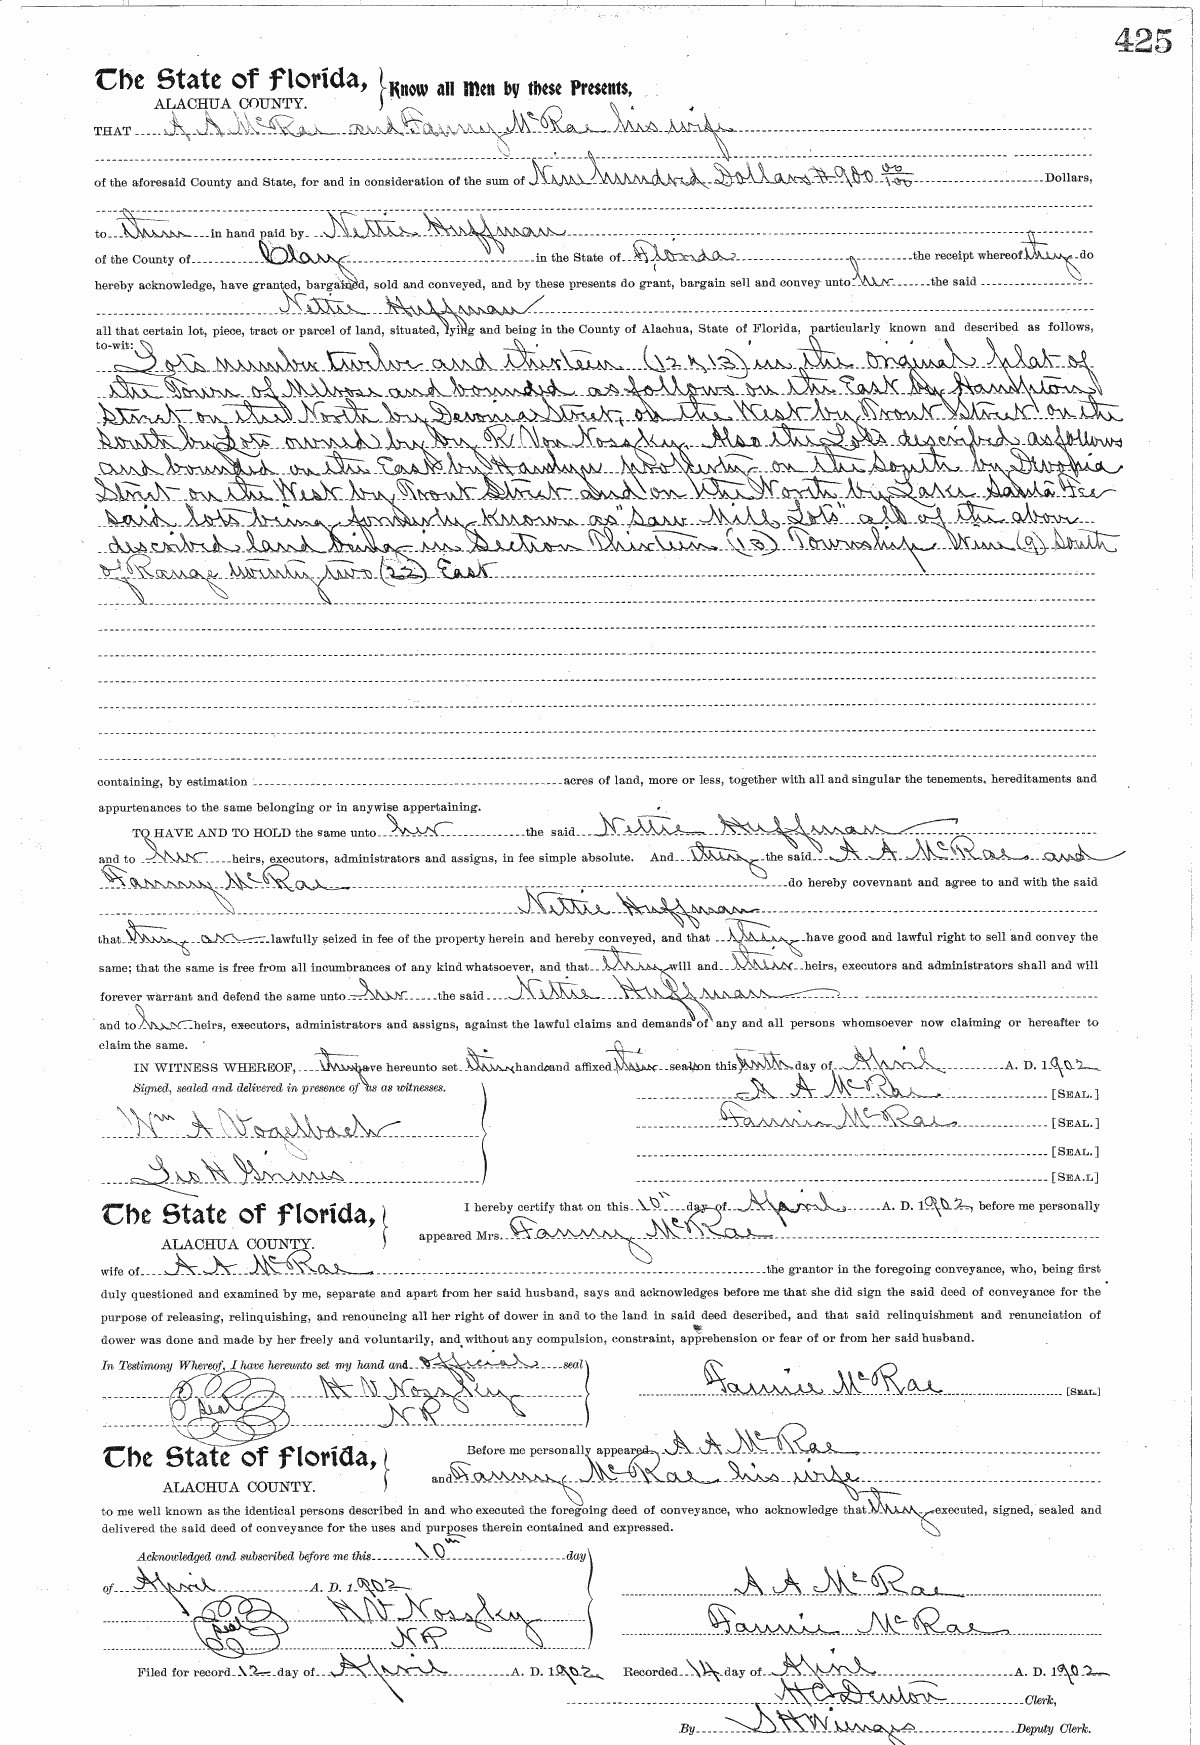 425
The State of Florida, } Know all Men by these Presents,
ALACHUA COUNTY.
THAT A A McRae and Fanny McRae his wife
of the aforesaid County and State, for and in consideration of the sum of Nine hundred Dollars # 900 00/100 Dollars,
to them in hand paid by Nettie Huffman
of the County of Clay in the State of Florida the receipt whereof they do
hereby acknowledge, have granted, bargained, sold and conveyed, and by these presents do grant, bargain sell and convey unto her the said
Nettie Huffman
all that certain lot, piece, tract or parcel of land, situated, lying and being in the County of Alachua, State of Florida, particularly known and described as follows,
to-wit:
Lots number twelve and thirteen (12 & 13) in the original plat of
the Town of Melrose and bounded as follows on the East by Hampton
Street on the North by Street, on the West by Trout Street on the
South by Lots owned by by R Von Noszky. Also the Lots described as follows
and bounded on the East by property on the South by
Street on the West by Trout Street and on the North by Lake Santa Fee
said lots being formerly known as "Saw Mill Lots" all of the above
described land being in Section Thirteen (13) Township Nine (9) South
of Range twenty two (22) East
containing, by estimation acres of land, more or less, together with all and singular the tenements, hereditaments and
appurtenances to the same belonging or in anywise appertaining.
TO HAVE AND TO HOLD the same unto her the said Nettie Huffman
and to her heirs, executors, administrators and assigns, in fee simple absolute. And they the said A A McRae and
Fanny McRae do hereby covevnant and agree to and with the said
Nettie Huffman
that they are lawfully seized in fee of the property herein and hereby conveyed, and that they have good and lawful right to sell and convey the
same; that the same is free from all incumbrances of any kind whatsoever, and that they will and their heirs, executors and administrators shall and will
forever warrant and defend the same unto her the said Nettie Huffman
and to her heirs, executors, administrators and assigns, against the lawful claims and demands of any and all persons whomsoever now claiming or hereafter to
claim the same.
IN WITNESS WHEREOF, they have hereunto set their hands and affixed their seals on this tenth day of April A. D. 1902
Signed, sealed and delivered in presence of us as witnesses.
A A McRae [SEAL.]
Wm A Vogelbach Fannie McRae [SEAL.]
[SEAL.]
Geo H Grimes [SEA.L]
The State of Florida, } I hereby certify that on this 10th day of April A. D. 1902, before me personally
ALACHUA COUNTY. appeared Mrs. Fanny McRae
wife of A A McRae the grantor in the foregoing conveyance, who, being first
duly questioned and examined by me, separate and apart from her said husband, says and acknowledges before me that she did sign the said deed of conveyance for the
purpose of releasing, relinquishing, and renouncing all her right of dower in and to the land in said deed described, and that said relinquishment and renunciation of
dower was done and made by her freely and voluntarily, and without any compulsion, constraint, apprehension or fear of or from her said husband.
In Testimony Whereof, I have hereunto set my hand and official seal
Seal H V Noszky Fannie McRae [SEAL.]
N P
The State of Florida, } Before me personally appeared A A McRae
ALACHUA COUNTY. and Fanny McRae his wife
to me well known as the identical persons described in and who executed the foregoing deed of conveyance, who acknowledge that they executed, signed, sealed and
delivered the said deed of conveyance for the uses and purposes therein contained and expressed.
Acknowledged and subscribed before me this 10th day
of April A. D. 1902 A A McRae
Seal H V Noszky Fannie McRae
N P
Filed for record 12 day of April A. D. 1902 Recorded 14 day of April A. D. 1902
H C Denton Clerk,
By S H Wienges Deputy Clerk.